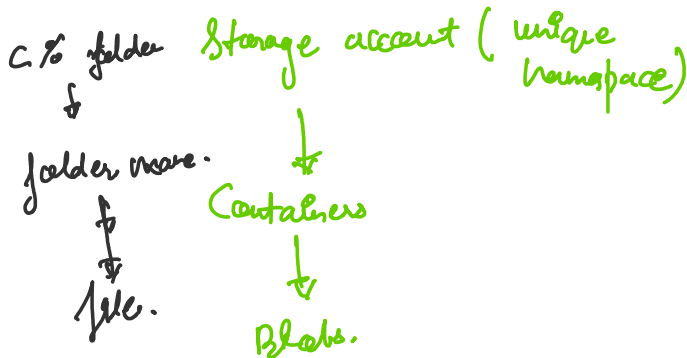 C:% folder
folder name.
file.
Storage account (unique
namespace)
Containers
Blobs.